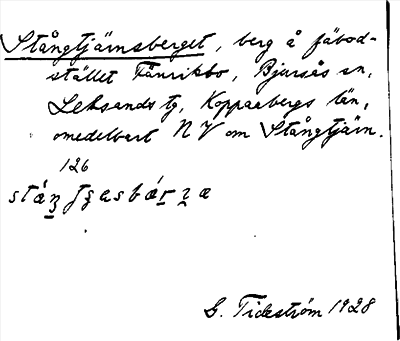 Stångtjärnsberget, berg å fäbod-
stället Fänriksbo, Bjursås sn,
Leksands tg, Kopparbergs län,
omedelbart N V om Stångtjärn.
126
G. Tideström 1928